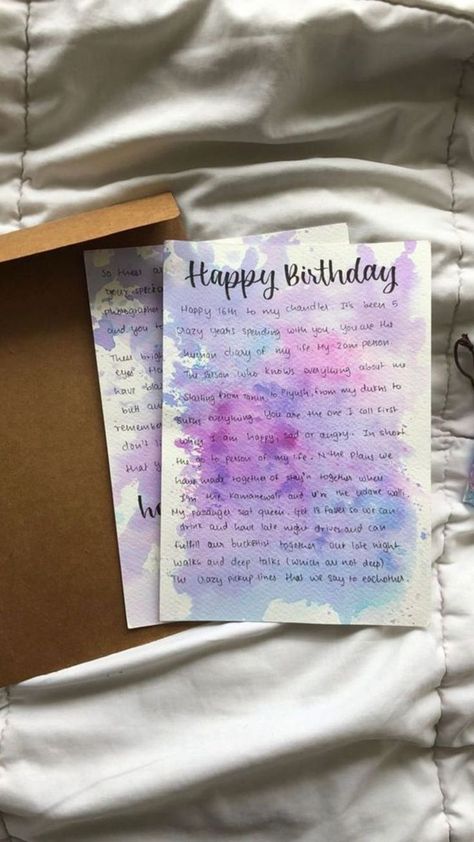 Happy Birthday
Happy 16th to my chandler. It's been 5
crazy years spending with you. You are the
human diary of my life My 2am person
The person who knows everything about me
starting from to Piyush, from my dukhs to
everything. You are the one I call first
when I am happy, sad or angry. In short
the go to person of my life. N the plans we
have made together of stay'n together where
I'm the kamanewali and u're the udane wali.
My passenger seat queen. Get 18 faster so we can
drink and have late night drives and can
fulfill our bucketlist together. Our late night
walks and deep talks (which are not deep)
The crazy pickup lines that we say to eachother.
So these
your
photographer
and you to
These
eyes
have
butt
remember
don't
that y